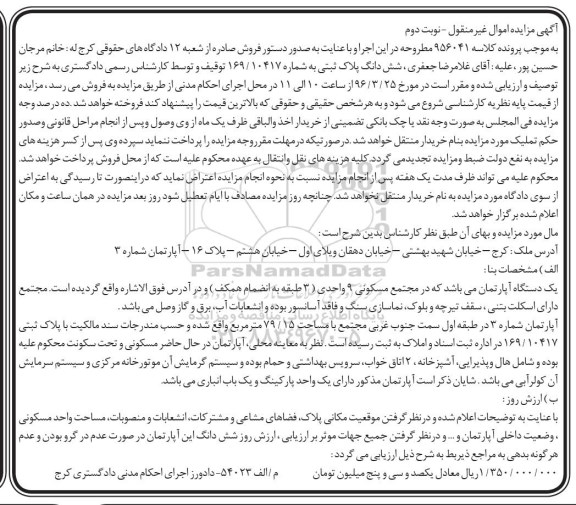 آگهی مزایده اموال غیرمنقول -نوبت دوم
به موجب پرونده کلاسه ۹۵۶۰۴۱ مطروحه در این اجرا و با عنایت به صدور دستور فروش صادره از شعبه ۱۲ دادگاه های حقوقی کرج له : خانم مرجان
حسین پور، علیه : آقای غلامرضا جعفری ، شش دانگ پلاک ثبتی به شماره ۱۶۹/۱۰۴۱۷ توقیف و توسط کارشناس رسمی دادگستری به شرح زیر
توصیف و ارزیابی شده و مقرر است در مورخ ۹۶/۳/۲۵ از ساعت ۱۰ الی ۱۱ در محل اجرای احکام مدنی از طریق مزایده به فروش می رسد ، مزایده
از قیمت پایه نظریه کارشناسی شروع می شود و به هر شخص حقیقی و حقوقی که بالاترین قیمت را پیشنهاد کند فروخته خواهد شد .ده درصد وجه
مزایده فی المجلس به صورت وجه نقد یا چک بانکی تضمینی از خریدار اخذ والباقی ظرف یک ماه از وی وصول وپس از انجام مراحل قانونی وصدور
حکم تملیک مورد مزایده بنام خریدار منتقل خواهد شد .درصورتیکه درمهلت مقرروجه مزایده را پرداخت ننماید سپرده وی پس از کسر هزینه های
مزایده به نفع دولت ضبط ومزایده تجدیدمی گردد.کلیه هزینه های نقل وانتقال به عهده محکوم علیه است که از محل فروش پرداخت خواهد شد.
محکوم علیه می تواند ظرف مدت یک هفته پس از انجام مزایده نسبت به نحوه انجام مزایده اعتراض نماید که دراینصورت تا رسیدگی به اعتراض
از سوی دادگاه مورد مزایده به نام خریدار منتقل نخواهد شد. چنانچه روز مزایده مصادف با ایام تعطیل شود روز بعد مزایده در همان ساعت و مکان
اعلام شده برگزار خواهد شد.
مال مورد مزایده و بهای آن طبق نظر کارشناس بدین شرح است :
آدرس ملک : کرج –خیابان شهید بهشتی –خیابان دهقان ویلای اول –خیابان هشتم –پلاک ۱۶ –آپارتمان شماره ۳
الف ) مشخصات بنا :
یک دستگاه آپارتمان می باشد که در مجتمع مسکونی ۹ واحدی ( ۳ طبقه به انضمام همکف ) و در آدرس فوق الاشاره واقع گردیده است. مجتمع
دارای اسکلت بتنی ، سقف تیرچه و بلوک، نماسازی سنگ و فاقد آسانسور بوده و انشعابات آب، برق و گاز وصل می باشد .
آپارتمان شماره ۳ در طبقه اول سمت جنوب غربی مجتمع با مساحت ۷۹/۱۵ مترمربع واقع شده و حسب مندرجات سند مالکیت با پلاک ثبتی
۱۶۹/۱۰۴۱۷ در اداره ثبت اسناد و املاک به ثبت رسیده است . نظر به معاینه محلی، آپارتمان در حال حاضر مسکونی و تحت سکونت محکوم علیه
بوده و شامل هال وپذیرایی، آشپزخانه ، ۲اتاق خواب، سرویس بهداشتی و حمام بوده و سیستم گرمایش آن موتورخانه مرکزی و سیستم سرمایش
آن کولرآبی می باشد . شایان ذکر است آپارتمان مذکور دارای یک واحد پارکینگ و یک باب انباری می باشد.
ب ) ارزش روز :
با عنایت به توضیحات اعلام شده و درنظر گرفتن موقعیت مکانی پلاک، فضاهای مشاعی و مشترکات، انشعابات و منصوبات، مساحت واحد مسکونی
، وضعیت داخلی آپارتمان و ... و درنظر گرفتن جمیع جهات موثر بر ارزیابی ، ارزش روز شش دانگ این آپارتمان در صورت عدم در گرو بودن و عدم
هرگونه بدهی به مراجع ذیربط به شرح ذیل ارزیابی می گردد :
۱/۳۵۰/۰۰۰/۰۰۰ ریال معادل یکصد و سی و پنج میلیون تومان م/الف ۵۴۰۲۳-دادورز اجرای احکام مدنی دادگستری کرج
ParsNamadData